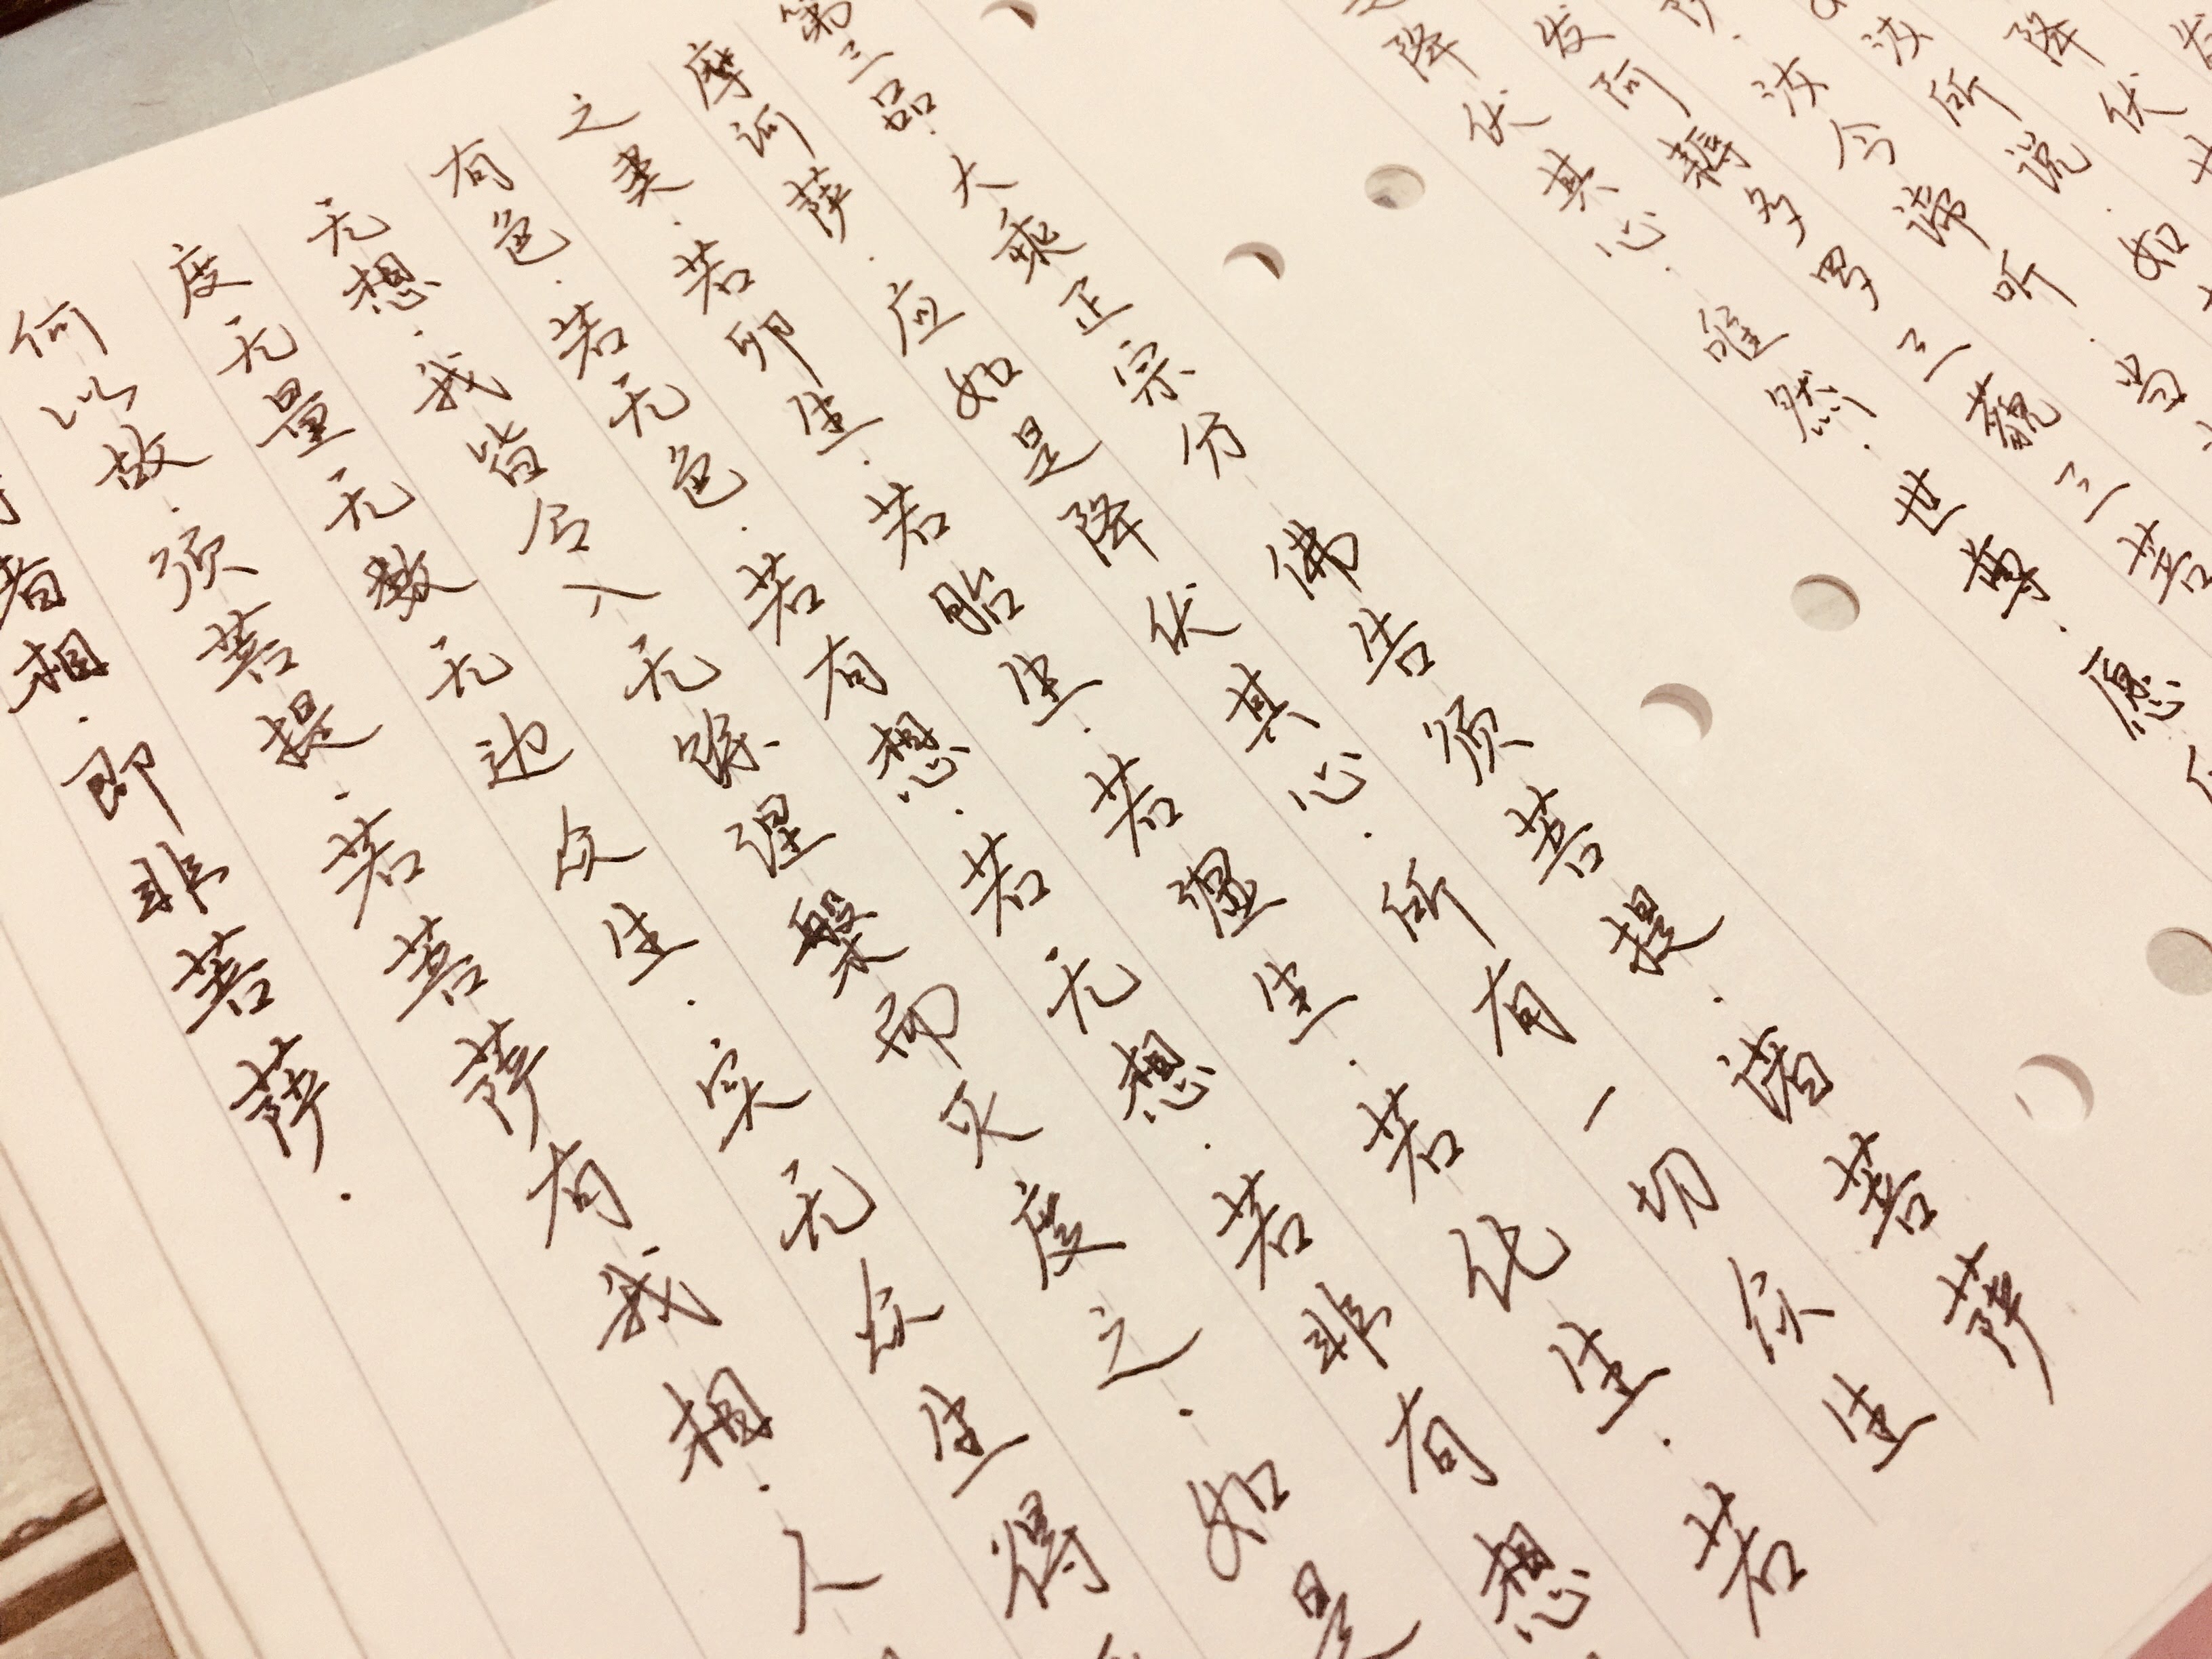 降伏
汝所说.如
汝今谛听.当
发阿耨多罗三藐三菩
降伏其心.唯然.世尊.愿
第三品 大乘正宗分 佛告须菩提.诸菩萨
摩诃萨.应如是降伏其心.所有一切众生
之类.若卵生.若胎生.若湿生.若化生.若
有色.若无色.若有想.若无想.若非有想
无想.我皆令入无馀涅槃而灭度之.如是
度无量无数无边众生.实无众生得
何以故.须菩提.若菩萨有我相.人
者相.即非菩萨.